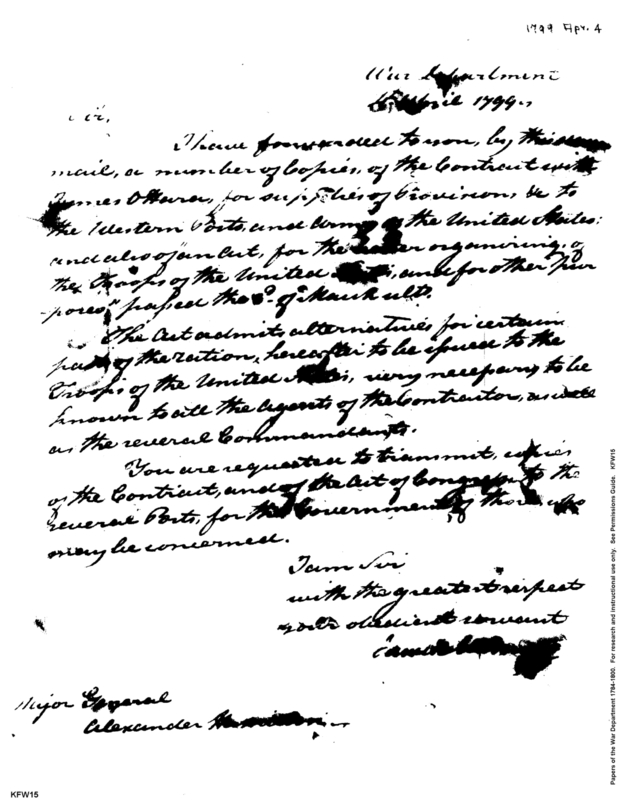 1799 Apr. 4
War Department
April 1799.
Sir,
I have forwarded to you, by this
mail, a number of Copies, of the Contract with
James OHara, for supplies of Provision, &c to
the Western Posts, and Army of the United States:
and also of an Act, for the organizing, of
the Troops of the United and for other "pur
-poses" passed the 3d. of March ulto.
The Act admits alternatives for certain
parts of the ration, hereafter to be issued to the
Troops of the United States, very necessary to be
known to all the Agents of the Contractor, as well
as the several Commandants.
You are requested to transmit, copies
of the Contract, and of the Act of Congress to the
several Posts, for the Government of those who
may be concerned.
I am Sir
with the greatest respect
your obedient servant
James
Major General
Alexander Hamilton.
KFW15
Papers of the War Department 1784-1800. For research and instructional use only. See Permissions Guide. KFW15